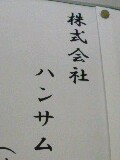 株式会社
ハンサム